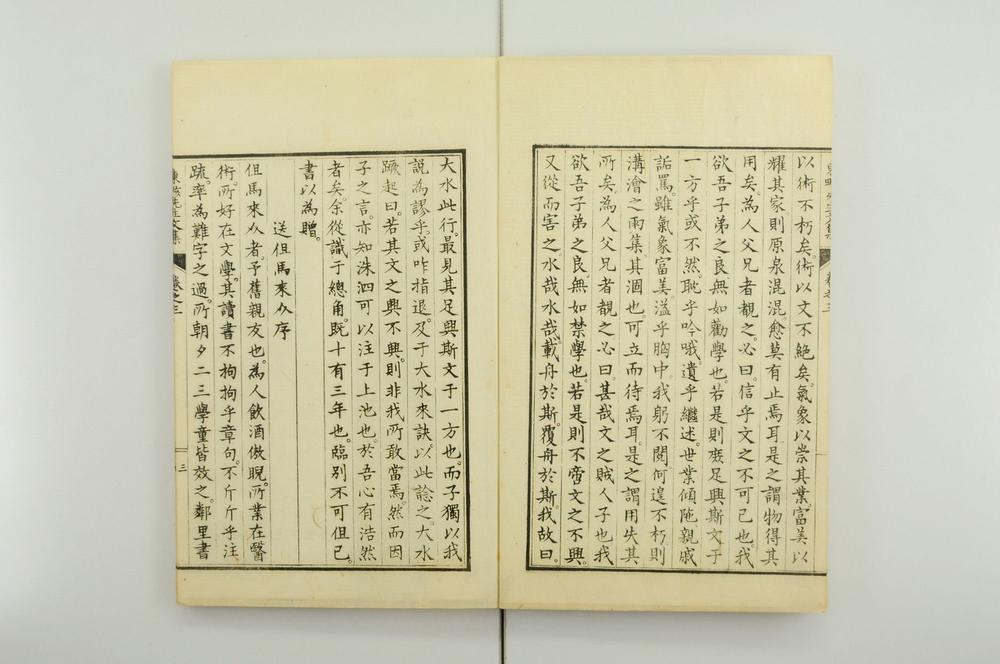 以術不朽矣。術以文不絶矣。氣象以崇其業富美以
耀其家。則原泉混混。愈莫有止焉耳。是之謂物得其
用矣。為人父兄者覩之。必曰。信乎文之不可已也。我
欲吾子弟之良。無如勸學也。若是則奕足興斯文于
一方乎。或不然。恥乎吟哦。遺乎繼述。世業傾陁。親戚
詬罵。雖氣象富美。溢乎胸中。我躬不閱。何遑不朽。則
溝澮之雨集。其涸也可立而待焉耳。是之謂用失其
所矣。為人父兄者覩之。必曰。甚哉文之賊人子也。我
欲吾子弟之良。無如禁學也。若是則不啻文之不興。
又從而害之。水哉水哉。載舟於斯。覆舟於斯。我故曰。
卷之三
大水此行。最見其足興斯文于一方也。而子獨以我
説為謬乎。或咋指退。及于大水來訣。以此諗之。大水
蹶起曰。若其文之興不興。則非我所敢當焉。然而因
子之言。亦知洙泗可以注于上池也。於吾心有浩然
者矣。余從識于總角。既十有三年也。臨別不可但已。
書以為贈。
送但馬來从序
但馬來从者。予舊親友也。為人飲酒傲睨。所業在醫
術。所好在文學。其讀書不拘拘乎章句。不斤斤乎注
疏。率為難字之過。所朝夕二三學童皆效之。鄰里書
先生文集
卷之三
三